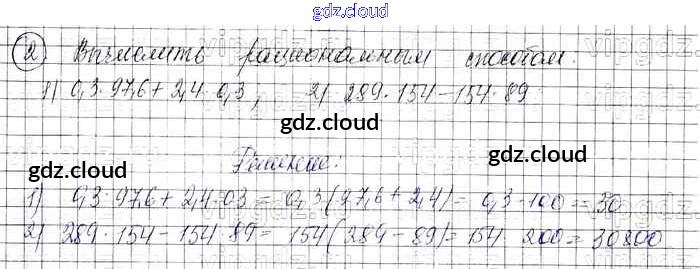 gdz.cloud
② Вычислить рациональным способом.
1) 0,3·97,6 + 2,4·0,3, 2) 289·154 – 154·89
gdz.cloud
gdz.cloud
Решение:
gdz.cloud
1) 0,3·97,6 + 2,4·03 = 0,3(97,6 + 2,4) = 0,3·100 = 30
2) 289·154 – 154·89 = 154(289 – 89) = 154·200 = 30800